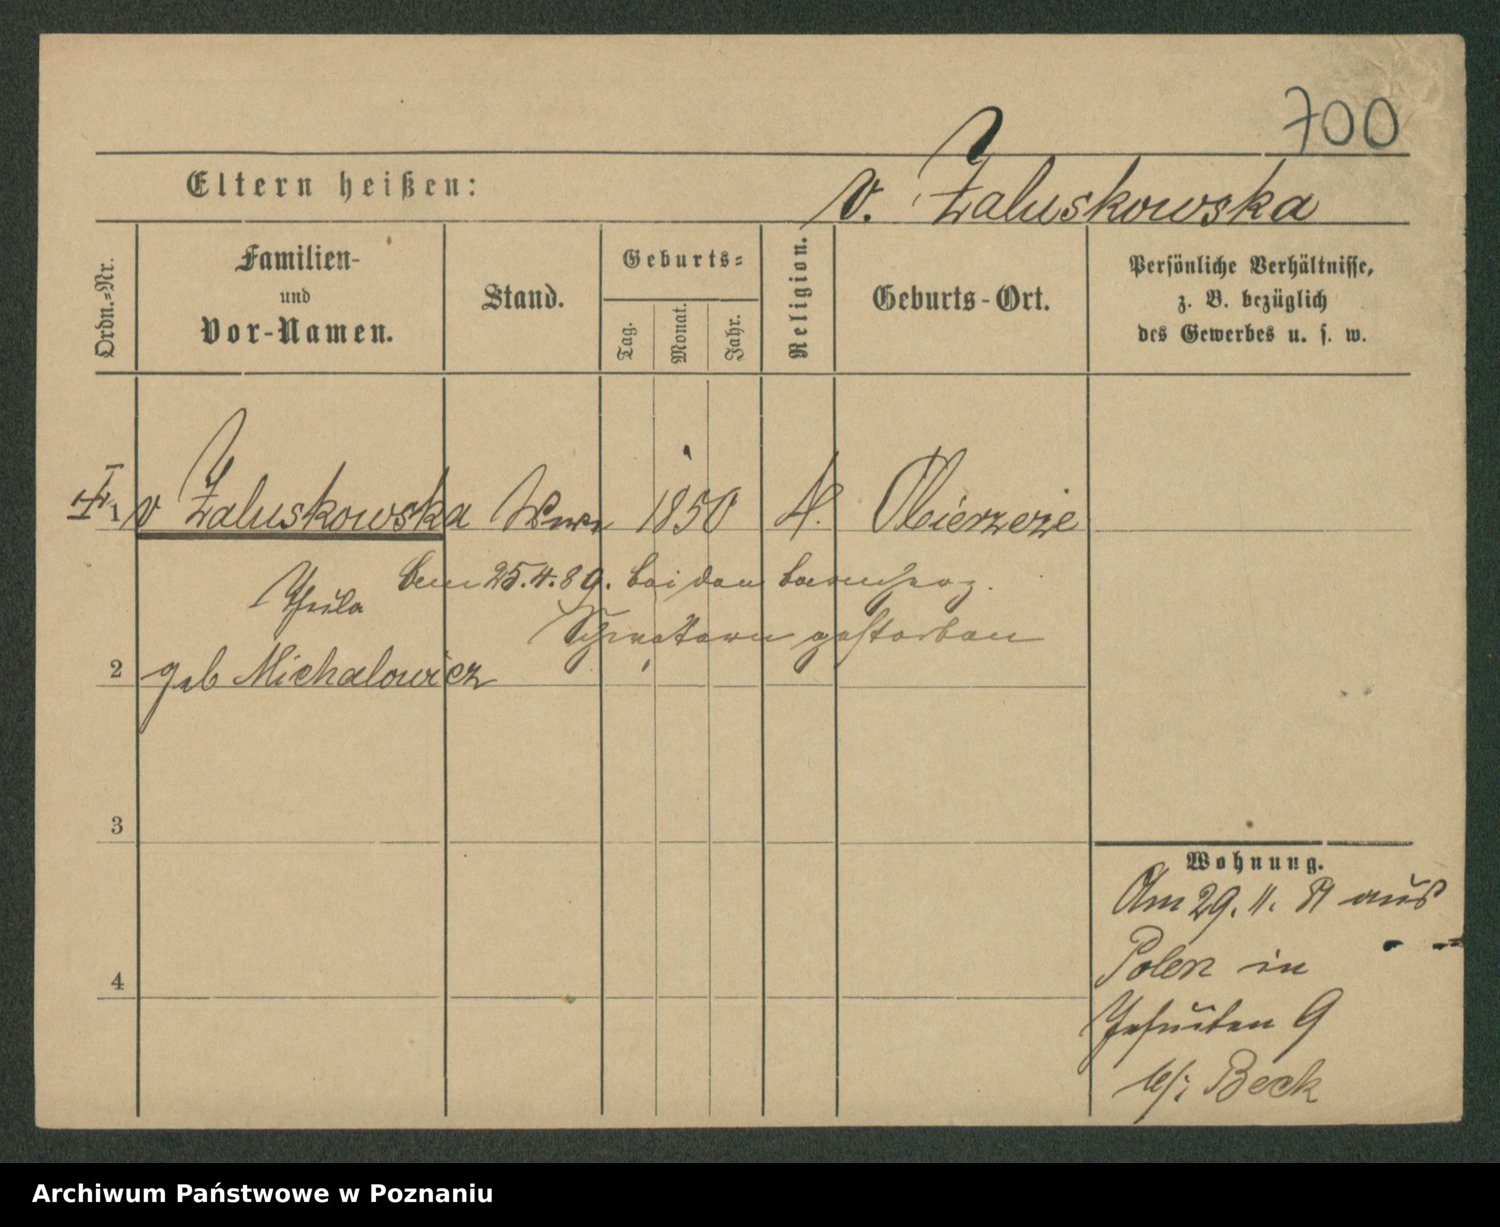 700
Eltern heißen:
v. Żaluskowska
Ordn.=Nr.
Familien-
und
Vor-Namen.
Stand.
Geburts=
Tag.
Monat.
Jahr.
Religion.
Geburts-Ort.
Persönliche Verhältnisse,
z. B. bezüglich
des Gewerbes u. s. w.
1 v Żaluskowska Wwe 1850 k. Obierzeże
25.4.89. bei den barmherz.
Thela
Schwestern gestorben
2 geb Michalowicz
3
4
Wohnung.
Am 29. 11. 81 aus
Polen in
Jesuiten 9
b/: Beck
Archiwum Państwowe w Poznaniu